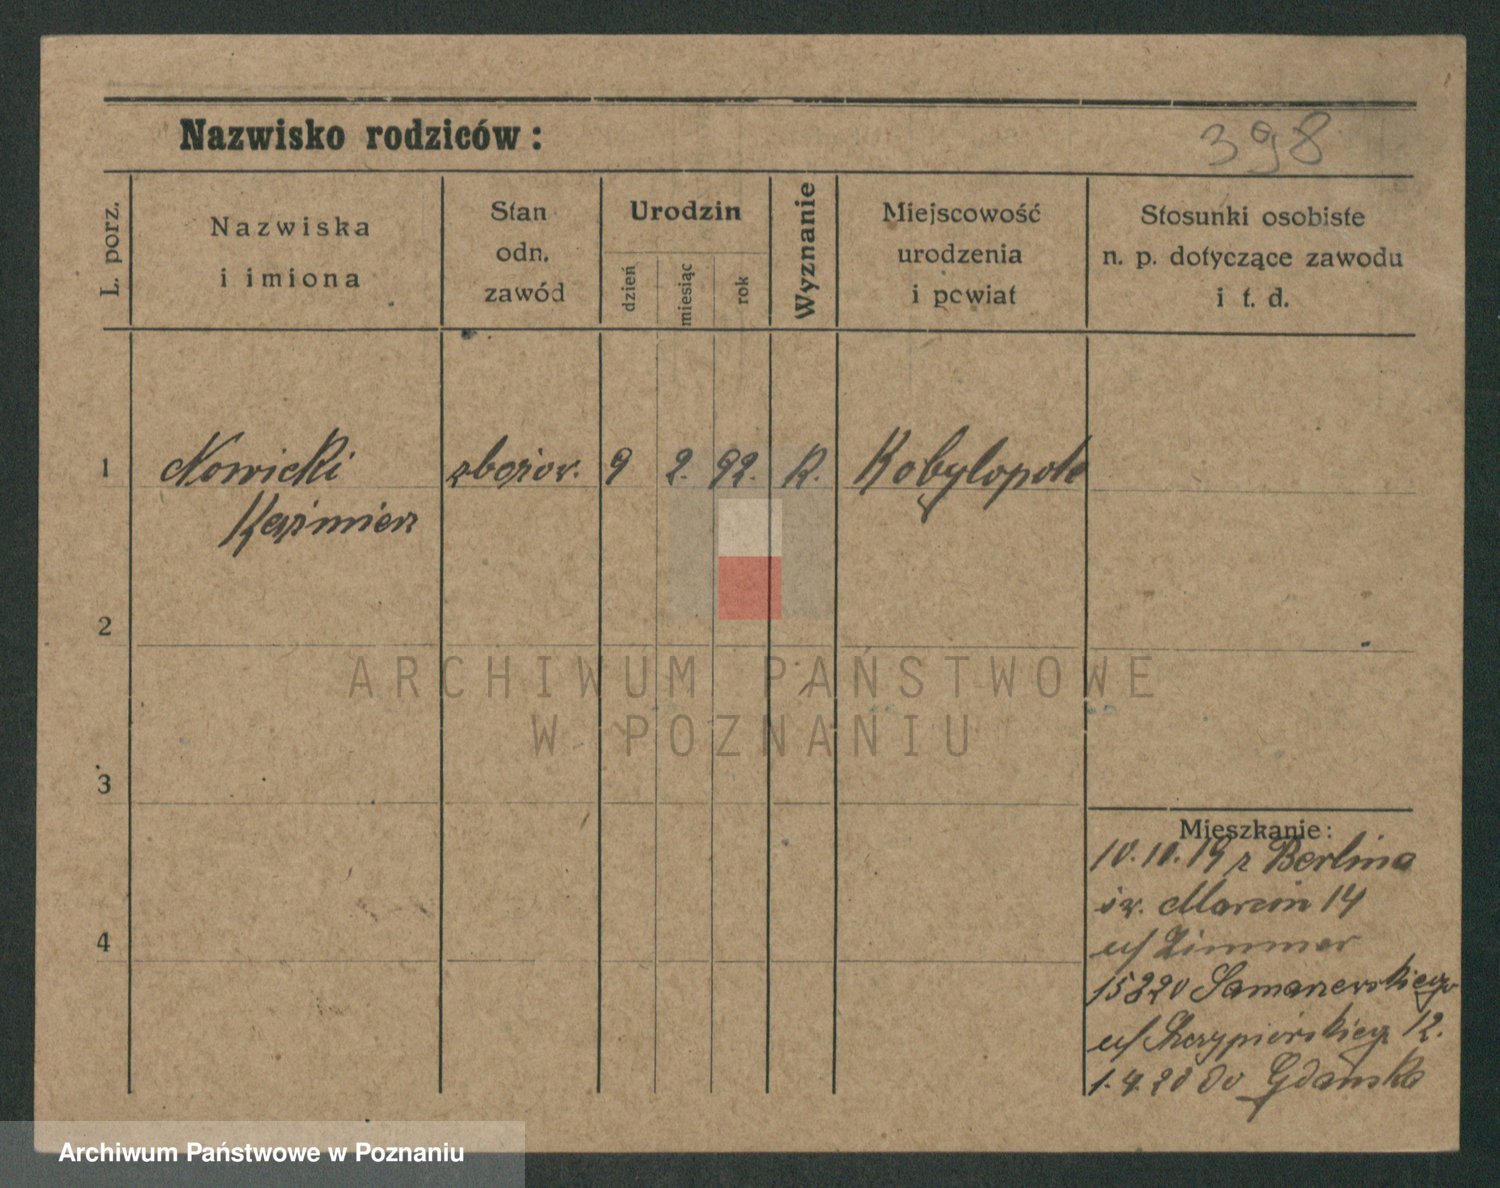 Nazwisko rodziców:
398
L. porz.
Nazwiska
i imiona
Stan
odn.
zawód
Urodzin
dzień
miesiąc
rok
Wyznanie
Miejscowość
urodzenia
i powiat
Stosunki osobiste
n. p. dotyczące zawodu
i t. d.
1 Nowicki 9 2. 92. K. Kobylopole
Kazimierz
2
ARCHIWUM PAŃSTWOWE
W POZNANIU
3
Mieszkanie:
10.10.19 z Berlina
św. Marcin 14
4
u/ Zimmer
Samarzewskiego
12.
1.4.20 do Gdańska
Archiwum Państwowe w Poznaniu